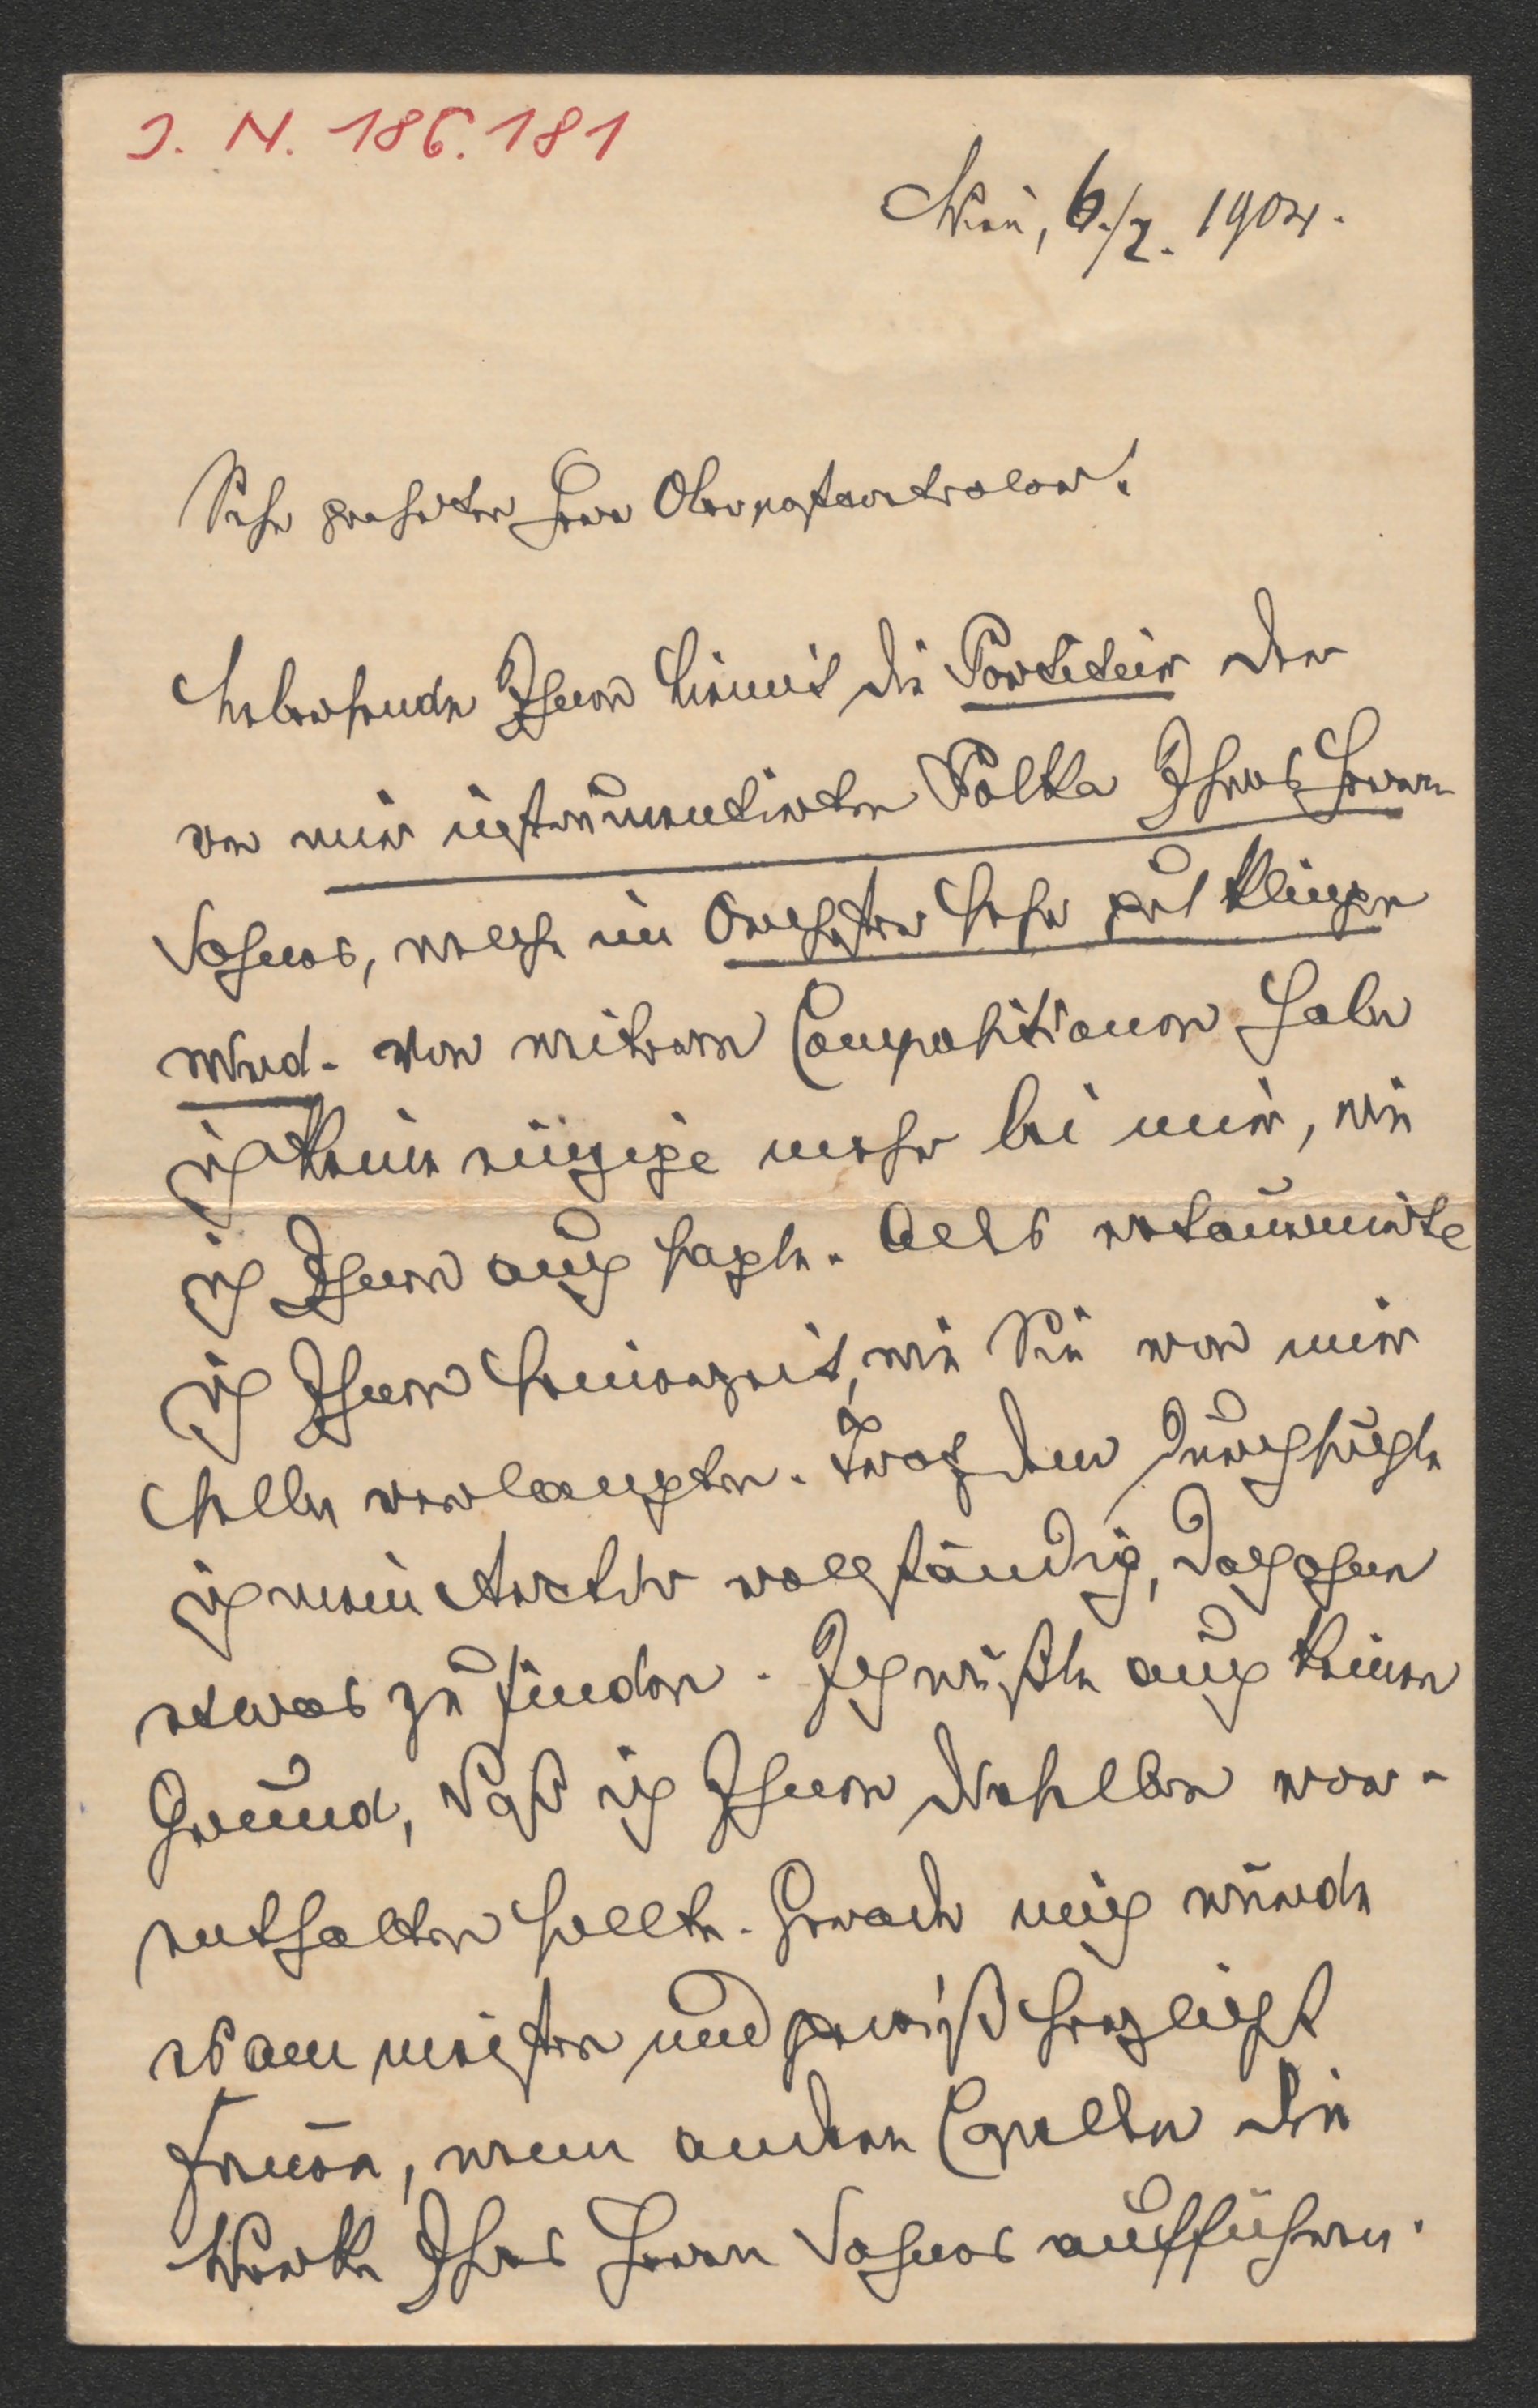 I. N. 186.181
Wien, 6./2. 1904.
Sehr geehrter Herr Oberpostcontrolor!
Uebersende Ihnen hiemit die Partitur der
von mir instrumentierten Polka Ihres Herrn
Sohnes, welche im Orchester sehr gut klingen
wird. Von weiteren Compositionen habe
ich keine einzige mehr bei mir, wie
ich Ihnen auch sagte. Alles retournirte
ich Ihnen seinerzeit, wie Sie von mir
selbe verlangten. Trotzdem durchsuchte
ich mein Archiv vollständig, doch ohne
etwas zu finden. Ich wüßte auch keinen
Grund, daß ich Ihnen dieselben vor-
enthalten sollte. Gerade mich würde
es am meisten und gewiß herzlichst
freuen, wenn andere Capellen die
Werke Ihres Herrn Sohnes aufführen.